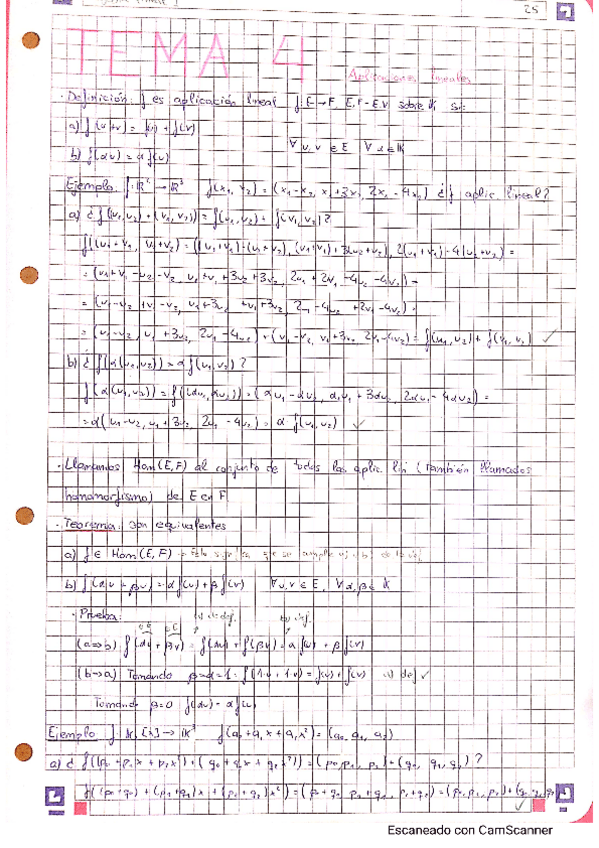 25
TEMA 4
Aplicaciones lineales
· Definición: f es aplicación lineal f: E → F, E, F - E.V sobre K si:
a) f(u+v) = f(u) + f(v)
∀ u, v ∈ E ∀ α ∈ K
b) f(αu) = α f(u)
Ejemplo f: R² → R³ f(x₁, x₂) = (x₁-x₂, x₁+3x₂, 2x₁-4x₂) ¿f aplic. lineal?
a) ¿f((u₁,u₂) + (v₁,v₂)) = f(u₁,u₂) + f(v₁,v₂)?
f(u₁+v₁, u₂+v₂) = ((u₁+v₁)-(u₂+v₂), (u₁+v₁)+3(u₂+v₂), 2(u₁+v₁)-4(u₂+v₂)) =
= (u₁+v₁-u₂-v₂, u₁+v₁+3u₂+3v₂, 2u₁+2v₁-4u₂-4v₂) =
= (u₁-u₂+v₁-v₂, u₁+3u₂+v₁+3v₂, 2u₁-4u₂+2v₁-4v₂) =
= (u₁-u₂, u₁+3u₂, 2u₁-4u₂) + (v₁-v₂, v₁+3v₂, 2v₁-4v₂) = f(u₁,u₂) + f(v₁,v₂) ✓
b) ¿f(α(u₁,u₂)) = α f(u₁,u₂)?
f(α(u₁,u₂)) = f((αu₁,αu₂)) = (αu₁-αu₂, αu₁+3αu₂, 2αu₁-4αu₂) =
= α(u₁-u₂, u₁+3u₂, 2u₁-4u₂) = α f(u₁,u₂) ✓
· Llamamos Hom(E,F) al conjunto de todas las aplic. lin (también llamados
homomorfismo) de E en F
· Teorema: son equivalentes
a) f ∈ Hom(E,F)
b) f(αu + βv) = α f(u) + β f(v) ∀ u, v ∈ E, ∀ α, β ∈ K
· Prueba:
(a⇒b) f(αu + βv) = f(αu) + f(βv) = α f(u) + β f(v)
(b→a) Tomando β=α=1: f(1·u + 1·v) = f(u) + f(v) a) def ✓
Tomando β=0 f(αu) = α f(u)
Ejemplo f: R₂[x] → R³ f(a₀+a₁x+a₂x²) = (a₀, a₁, a₂)
a) ¿f((p₀+p₁x+p₂x²) + (q₀+q₁x+q₂x²)) = (p₀,p₁,p₂) + (q₀,q₁,q₂)?
f((p₀+q₀) + (p₁+q₁)x + (p₂+q₂)x²) = (p₀+q₀, p₁+q₁, p₂+q₂) = (p₀,p₁,p₂) + (q₀,q₁,q₂) ✓
Escaneado con CamScanner